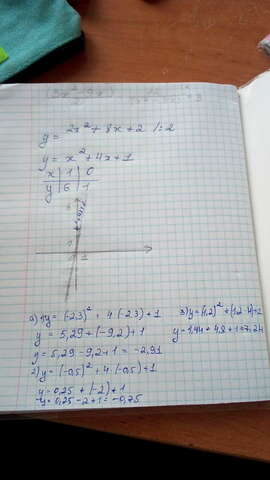 y = 2x² + 8x + 2 /:2
y = x² + 4x + 1
x | 1 | 0
y | 6 | 1
1) y = (-2,3)² + 4·(-2,3) + 1
y = 5,29 + (-9,2) + 1
y = 5,29 - 9,2 + 1 = -2,91
2) y = (-0,5)² + 4·(-0,5) + 1
y = 0,25 + (-2) + 1
y = 0,25 - 2 + 1 = -0,75
3) y = (1,2)² + (1,2·4) + 1
y = 1,44 + 4,8 + 1 = 7,24